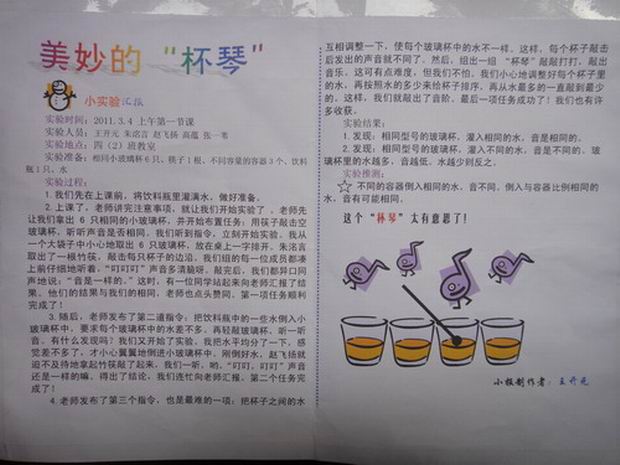 美妙的 “杯琴”
小实验汇报
实验时间：2011.3.4 上午第一节课
实验人员：王开元 朱洺言 赵飞扬 高蕴 张一
实验地点：四（2）班教室
实验准备：相同小玻璃杯6只、筷子1根、不同容量的容器3个、饮料
瓶1只、水
实验过程：
1.我们先在上课前，将饮料瓶里灌满水，做好准备。
2.上课了，老师讲完注意事项，就让我们开始实验了。老师先
让我们拿出 6 只相同的小玻璃杯，并开始布置任务：用筷子敲击空
玻璃杯，听听声音是否相同。我们听到指令，立刻开始实验。我从
一个大袋子中小心地取出 6 只玻璃杯，放在桌上一字排开。朱洺言
取出了一根竹筷，敲击每只杯子的边沿。我们组的每一位成员都凑
上前仔细地听着，“叮叮叮”声音多清脆呀。敲完后，我们都异口同
声地说：“音是一样的。”这时，有一位同学站起来向老师汇报了结
果。他们的结果与我们的相同，老师也点头赞同。第一项任务顺利
完成了！
3.随后，老师发布了第二道指令：把饮料瓶中的一些水倒入小
玻璃杯中，要求每个玻璃杯中的水差不多。再轻敲玻璃杯，听一听
音。有什么发现吗？我们又开始了实验。我把水平均分了一下，感
觉差不多了，才小心翼翼地倒进小玻璃杯中。刚倒好水，赵飞扬就
迫不及待地拿起竹筷敲了起来。我们一听，哟，“叮叮，叮叮”声音
还是一样的嘛。得出了结论，我们连忙向老师汇报。第二个任务完
成了！
4.老师发布了第三个指令，也是最难的一项：把杯子之间的水
互相调整一下，使每个玻璃杯中的水不一样。这样，每个杯子敲击
后发出的声音就不同了。然后，组出一组 “杯琴”敲敲打打，敲出
音乐。这可有点难度，但我们不怕。我们小心地调整好每个杯子里
的水，再按照水的多少来给杯子排序，再从水最多的一直敲到最少
的。这样，我们就敲出了音阶。最后一项任务成功了！我们也有许
多收获。
实验结果：
1.发现：相同型号的玻璃杯，灌入相同的水，音是相同的。
2.发现：相同型号的玻璃杯，灌入不同的水，音是不同的。玻
璃杯里的水越多，音越低，水越少则反之。
实验推测：
不同的容器倒入相同的水，音不同。倒入与容器比例相同的
水，音有可能相同。
这个“杯琴”太有意思了！
小报制作者：王开元